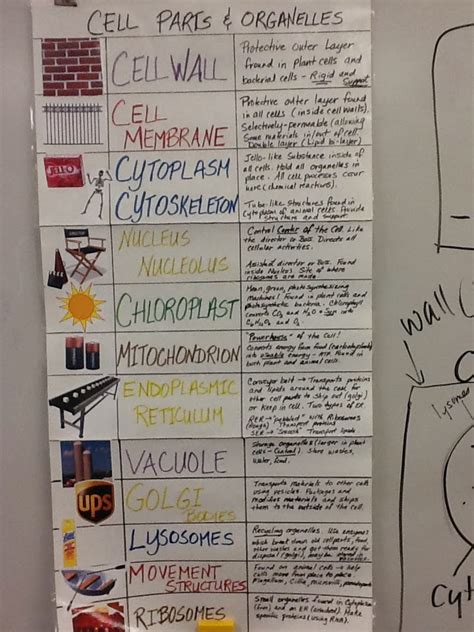 CELL PARTS & ORGANELLES
CELL WALL
Protective Outer Layer
found in plant cells and
bacterial cells - Rigid and
Support
CELL
MEMBRANE
Protective outer layer found
in all cells (inside cell walls).
Selectively-permeable (allowing
Some materials in/out of cell
Double layer (Lipid bi-layer)
JELLO
CYTOPLASM
CYTOSKELETON
Jello-like Substance inside of
all cells. Hold all organelles in
place. All cell processes occur
here (chemical reactions).
Tube-like Structures Found in
Cytoplasm of animal cells. Provide
Structure and Support
NUCLEUS
NUCLEOLUS
Control Center of the Cell. Like
the director or Boss. Directs all
cellular activities.
Assistant director or Boss. Found
inside Nucleus. Site of where
ribosomes are made.
CHLOROPLAST
Mean, green, photosynthesizing
Machines! Found in plant cells and
photosynthetic bacteria. Chloroplast
converts CO2 and H2O + Sun into
C6H12O6 and O2
MITOCHONDRION
"Powerhouse" of the Cell!
Converts energy from food (carbohydrates)
into useable energy - ATP. Found in both
plant and animal cells.
ENDOPLASMIC
RETICULUM
Conveyor belt → Transports proteins
and lipids around the cell for
other cell parts to ship out (golgi)
or Keep in cell. Two types of ER.
RER → "pebbled" with Ribosomes
(Rough) Transport proteins
SER → "Smooth" Transport lipids
VACUOLE
Storage organelles (larger in plant
cells - Central). Store wastes,
water, food.
ups
GOLGI
BODIES
Transports materials to other cells
using vesicles. Packages and
modifies materials and ships
them to the outside of the cell.
LYSOSOMES
Recycling organelles. Use enzymes
which break down old cell parts, food,
other wastes and get them ready for
disposal (golgi), maybe
MOVEMENT
STRUCTURES
Found on animal cells → help
cells move from place to place
Flagellum, Cilia, microvilli, pseudopods
RIBOSOMES
Small organelles found in Cytoplasm
(free) and on ER (attached). Make
proteins (using RNA).
wall
lysosome
Cyt